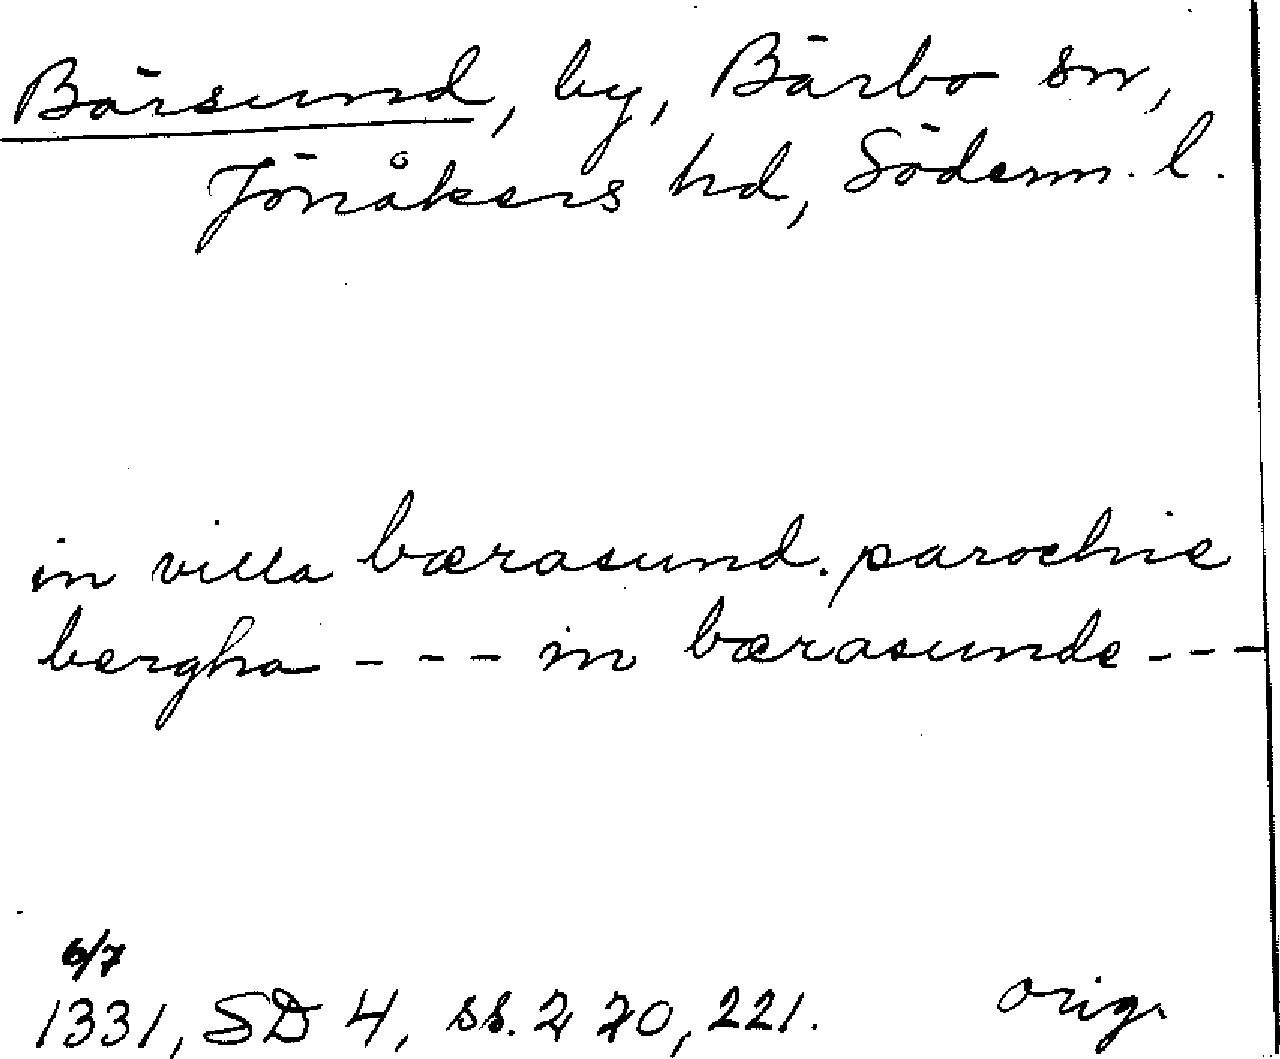 Bärsund, by, Bärbo sn,
Jönåkers hd, Söderm. l.
in villa bærasund. parochie
bergha - - - in bærasunde - - -
6/7
1331, SD 4, ss. 220, 221. orig.